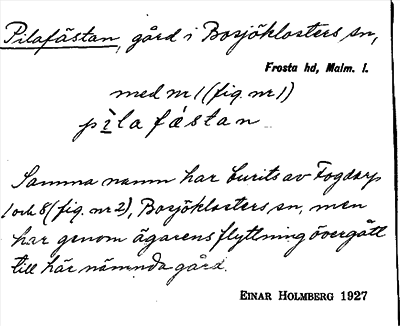 Pilafästan, gård i Bosjöklosters sn,
Frosta hd, Malm. l.
med nr 1 (fig. nr 1)
pìlafástan
Samma namn har burits av Fogdarp
1 och 8 (fig. nr 2), Bosjöklosters sn, men
har genom ägarens flyttning övergått
till här nämnda gård.
EINAR HOLMBERG 1927